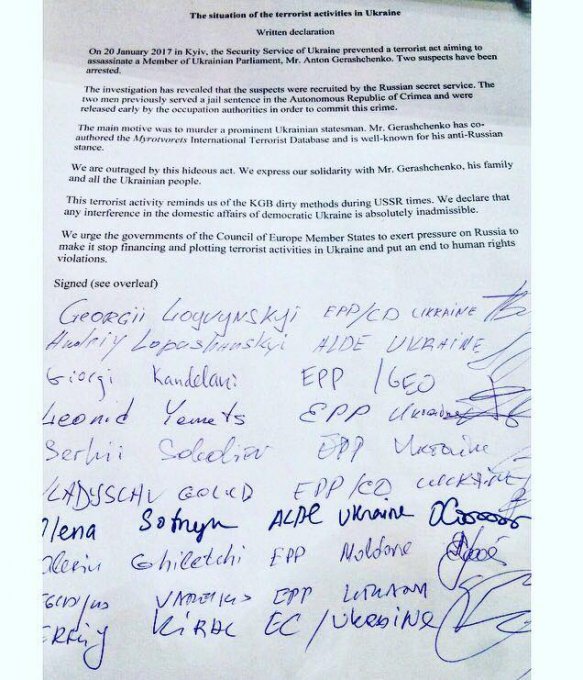 The situation of the terrorist activities in Ukraine
Written declaration
On 20 January 2017 in Kyiv, the Security Service of Ukraine prevented a terrorist act aiming to
assassinate a Member of Ukrainian Parliament, Mr. Anton Gerashchenko. Two suspects have been
arrested.
The investigation has revealed that the suspects were recruited by the Russian secret service. The
two men previously served a jail sentence in the Autonomous Republic of Crimea and were
released early by the occupation authorities in order to commit this crime.
The main motive was to murder a prominent Ukrainian statesman. Mr. Gerashchenko has co-
authored the Myrotvorets International Terrorist Database and is well-known for his anti-Russian
stance.
We are outraged by this hideous act. We express our solidarity with Mr. Gerashchenko, his family
and all the Ukrainian people.
This terrorist activity reminds us of the KGB dirty methods during USSR times. We declare that
any interference in the domestic affairs of democratic Ukraine is absolutely inadmissible.
We urge the governments of the Council of Europe Member States to exert pressure on Russia to
make it stop financing and plotting terrorist activities in Ukraine and put an end to human rights
violations.
Signed (see overleaf)
GEORGII Logvynskyi EPP/CD UKRAINE
Andriy Lopushanskyi ALDE UKRAINE
Giorgi Kandelaki EPP /GEO
Leonid Yemets EPP Ukraine
Serhii EPP Ukraine
EPP/CD UKRAINE
lena Sotnyk ALDE Ukraine
Ghiletchi EPP
EPP
KIRAL EC/UKRAINE